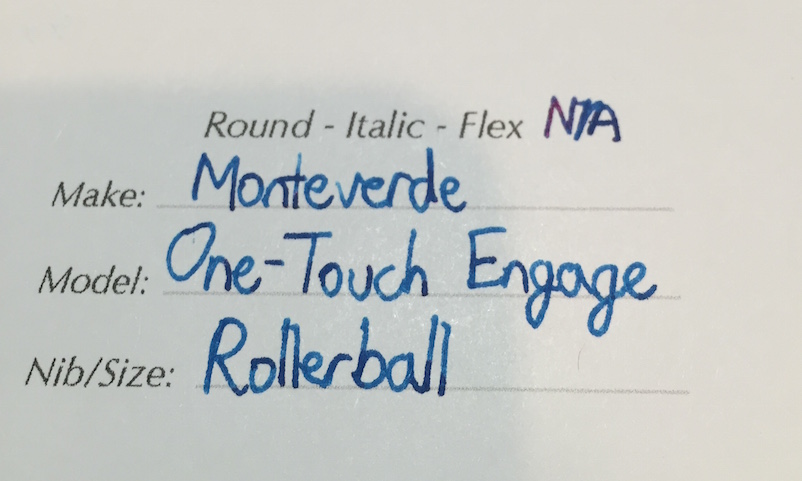 Round - Italic - Flex N/A
Make: Monteverde
Model: One-Touch Engage
Nib/Size: Rollerball